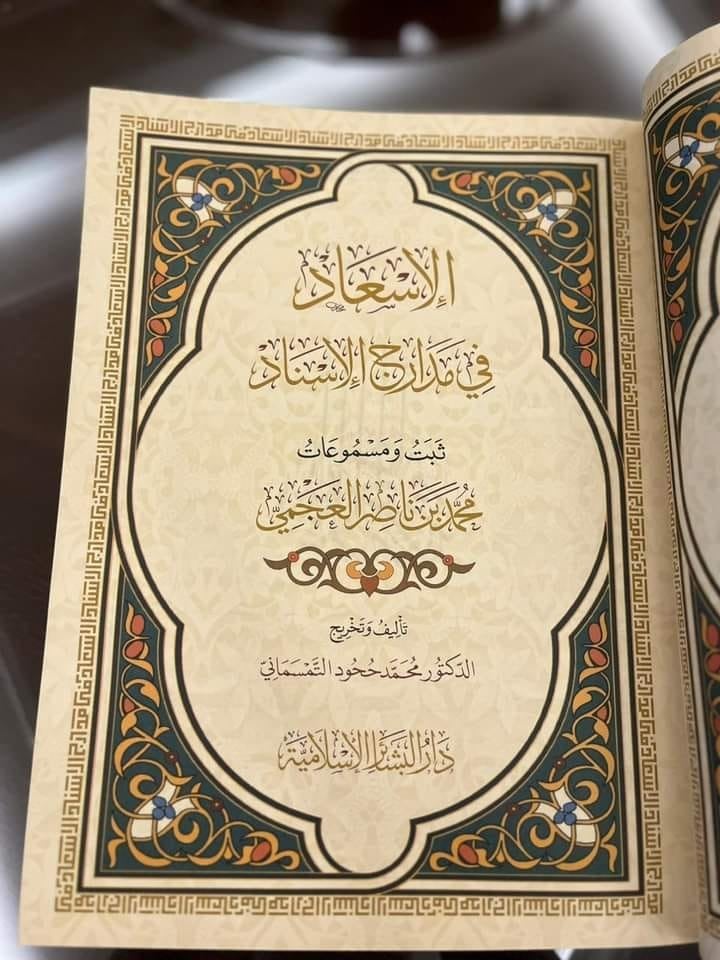 الإِسْعَاد
فِي مَدَارِجِ الإِسْنَادِ
ثَبَتُ وَمَسْمُوعَاتُ
مُحَمَّد بْن نَاصِر العَجَمِيّ
تَأْلِيفُ وَتَخْرِيج
الدّكتُور مُحَمَّد حُحُود التَّمْسَمَانِيّ
دَارُ البَشَائِر الإِسْلَامِيَّة